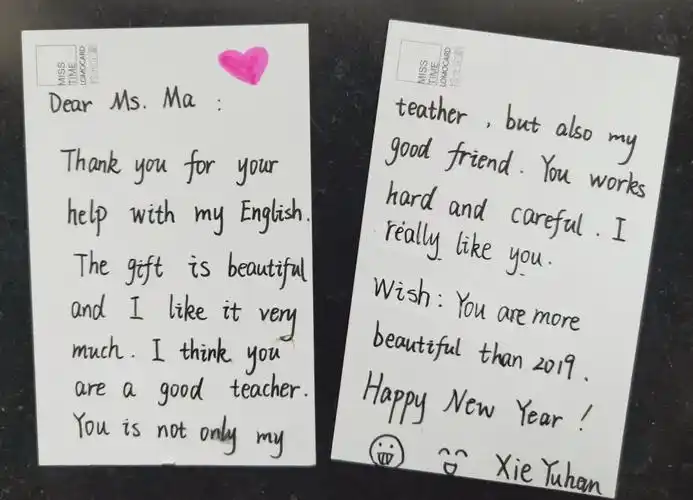 MISS
TIME
LOMOCARD
Dear Ms. Ma :
Thank you for your
help with my English.
The gift is beautiful
and I like it very
much. I think you
are a good teacher.
You is not only my
MISS
TIME
LOMOCARD
teather, but also my
good friend. You works
hard and careful. I
really like you.
Wish: You are more
beautiful than 2019.
Happy New Year!
Xie Yuhan